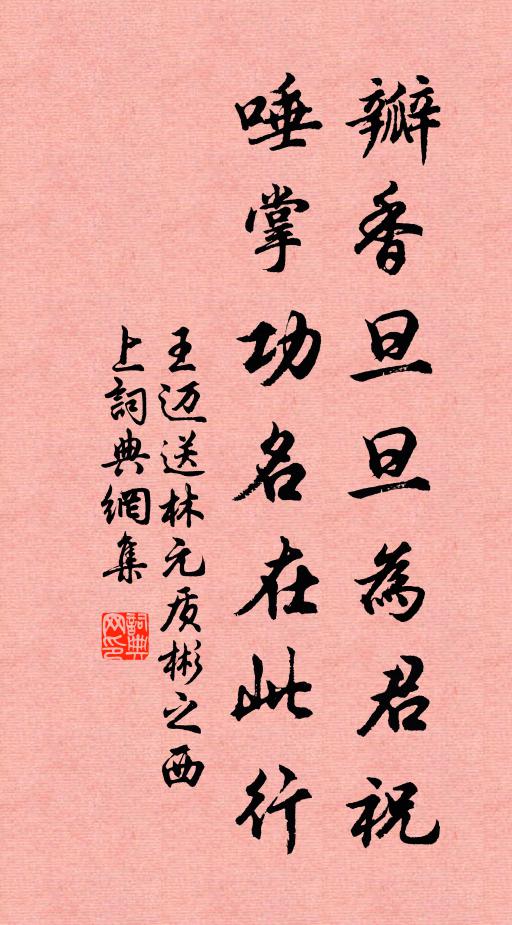 瓣香旦旦為君祝
唾掌功名在此行
王迈送林元质彬之西
上詞典網集
詞典
网印